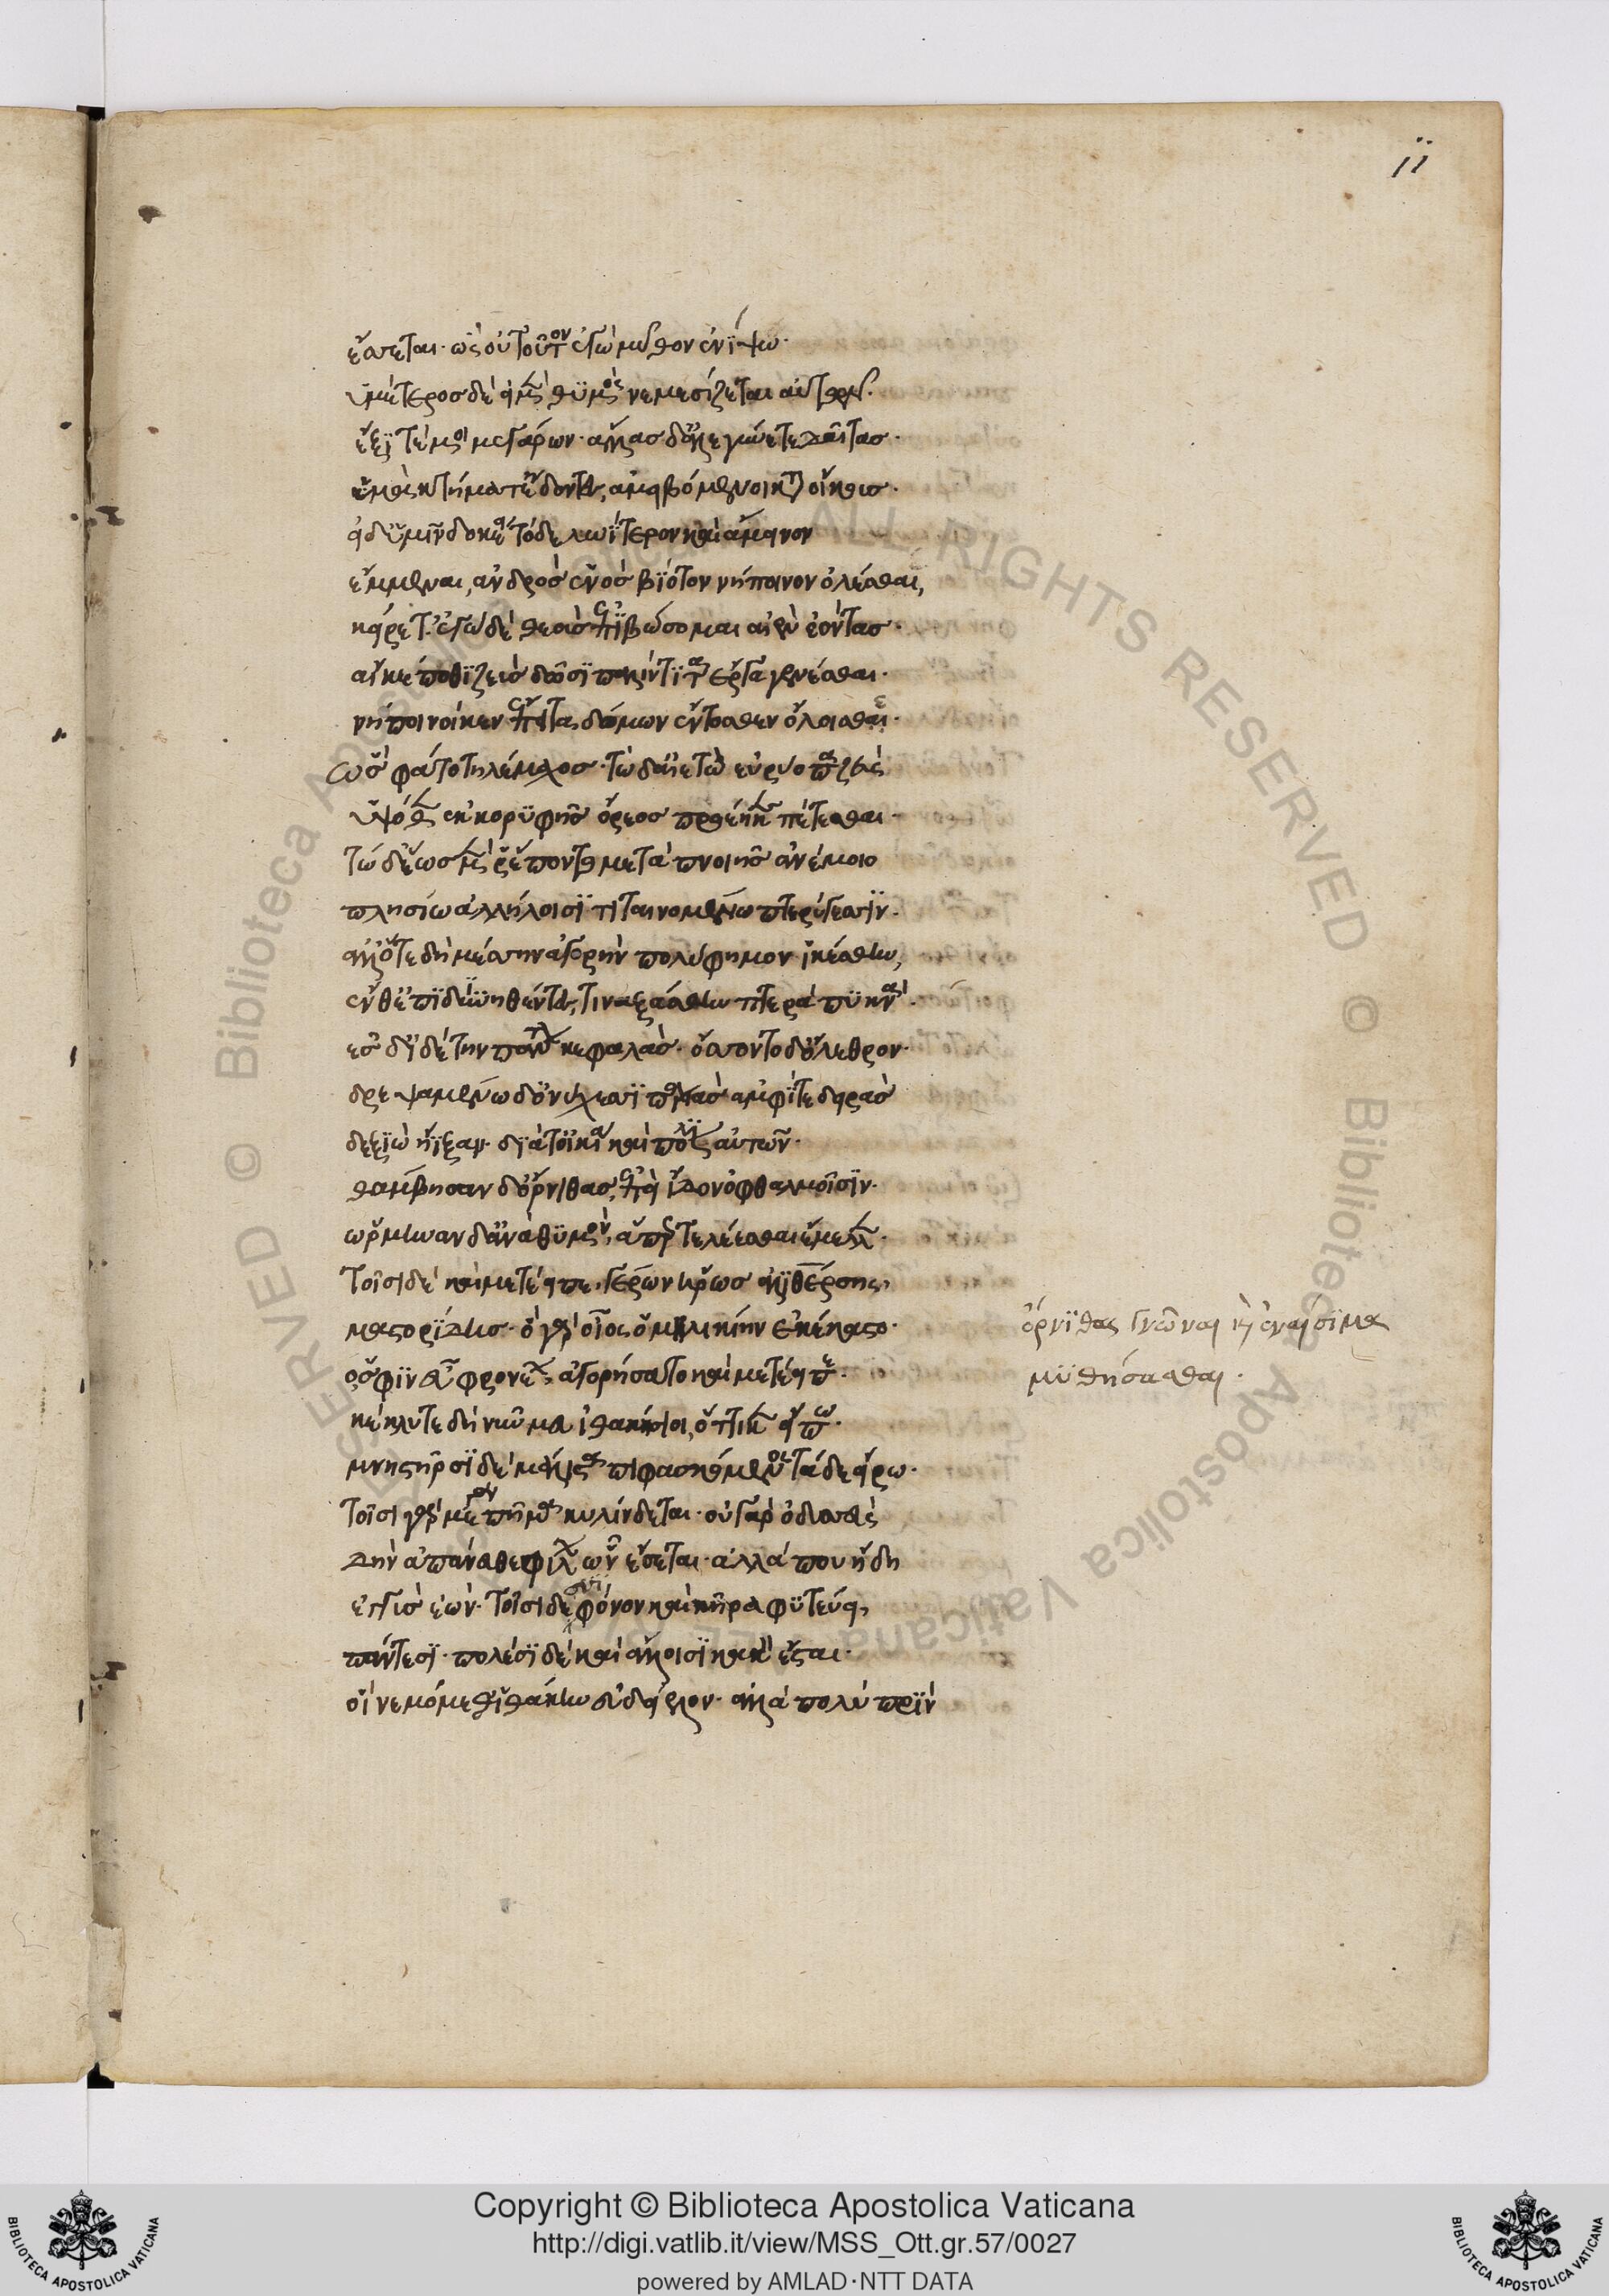 11
ἔσσεται· ὣς οὐ τοῦτον ἐγὼ μῦθον ἐνίψω·
ὑμέτερος δ' εἰ μὲν θυμὸς νεμεσίζεται αὐτῶν·
ἔξιτέ μοι μεγάρων· ἄλλας δ' ἀλεγύνετε δαῖτας·
ὑμὰ κτήματ' ἔδοντες, ἀμειβόμενοι κατὰ οἴκους·
εἰ δ' ὑμῖν δοκέει τόδε λωΐτερον καὶ ἄμεινον
ἔμμεναι, ἀνδρὸς ἑνὸς βίοτον νήποινον ὀλέσθαι,
κείρετ'· ἐγὼ δὲ θεοὺς ἐπιβώσομαι αἰὲν ἐόντας·
αἴ κέ ποθι ζεὺς δῶσι παλίντιτα ἔργα γενέσθαι·
νήποινοί κεν ἔπειτα δόμων ἔντοσθεν ὄλοισθε·
ὣς φάτο τηλέμαχος· τῷ δ' αἰετὼ εὐρύοπα ζεὺς
ὑψόθεν ἐκ κορυφῆς ὄρεος προέηκε πέτεσθαι·
τὼ δ' ἕως μέν ῥ' ἐπέτοντο μετὰ πνοιῇς ἀνέμοιο
πλησίω ἀλλήλοισι τιταινομένω πτερύγεσσιν·
ἀλλ' ὅτε δὴ μέσσην ἀγορὴν πολύφημον ἱκέσθην,
ἔνθ' ἐπιδινηθέντε, τιναξάσθην πτερὰ πυκνά·
ἐς δ' ἰδέτην πάντων κεφαλάς· ὄσσοντο δ' ὄλεθρον·
δρυψαμένω δ' ὀνύχεσσι παρειὰς ἀμφί τε δειρὰς
δεξιὼ ἤϊξαν· διά τ' οἰκία καὶ πόλιν αὐτῶν·
θάμβησαν δ' ὄρνιθας, ἐπεὶ ἴδον ὀφθαλμοῖσιν·
ὥρμηναν δ' ἀνὰ θυμὸν, ἅπερ τελέεσθαι ἔμελλε·
τοῖσι δὲ καὶ μετέειπε, γέρων ἥρως ἁλιθέρσης,
μαστορίδης· ὁ γὰρ οἶος ὁμηλικίην ἐκέκαστο·
ὅ σφιν ἐϋφρονέων, ἀγορήσατο καὶ μετέειπε·
κέκλυτε δὴ νῦν μευ ἰθακήσιοι, ὅττι κεν εἴπω·
μνηστῆρσι δὲ μάλιστα πιφασκόμενος τάδε εἴρω·
τοῖσι γὰρ μέγα πῆμα κυλίνδεται· οὐ γὰρ ὀδυσσεὺς
δὴν ἀπάνευθε φίλων ὧν ἔσσεται· ἀλλά που ἤδη
ἐγγὺς ἐών· τοῖσι δε φόνον καὶ κῆρα φυτεύει,
πάντεσι· πολέσι δὲ καὶ ἄλλοισι κακὸν ἔσται·
οἳ νεμόμεσθ' ἰθάκην εὐδείελον· ἀλλὰ πολὺ πρὶν
ὄρνιθας γνῶναι καὶ ἐναίσιμα
μυθήσασθαι·
Copyright © Biblioteca Apostolica Vaticana
http://digi.vatlib.it/view/MSS_Ott.gr.57/0027
powered by AMLAD·NTT DATA